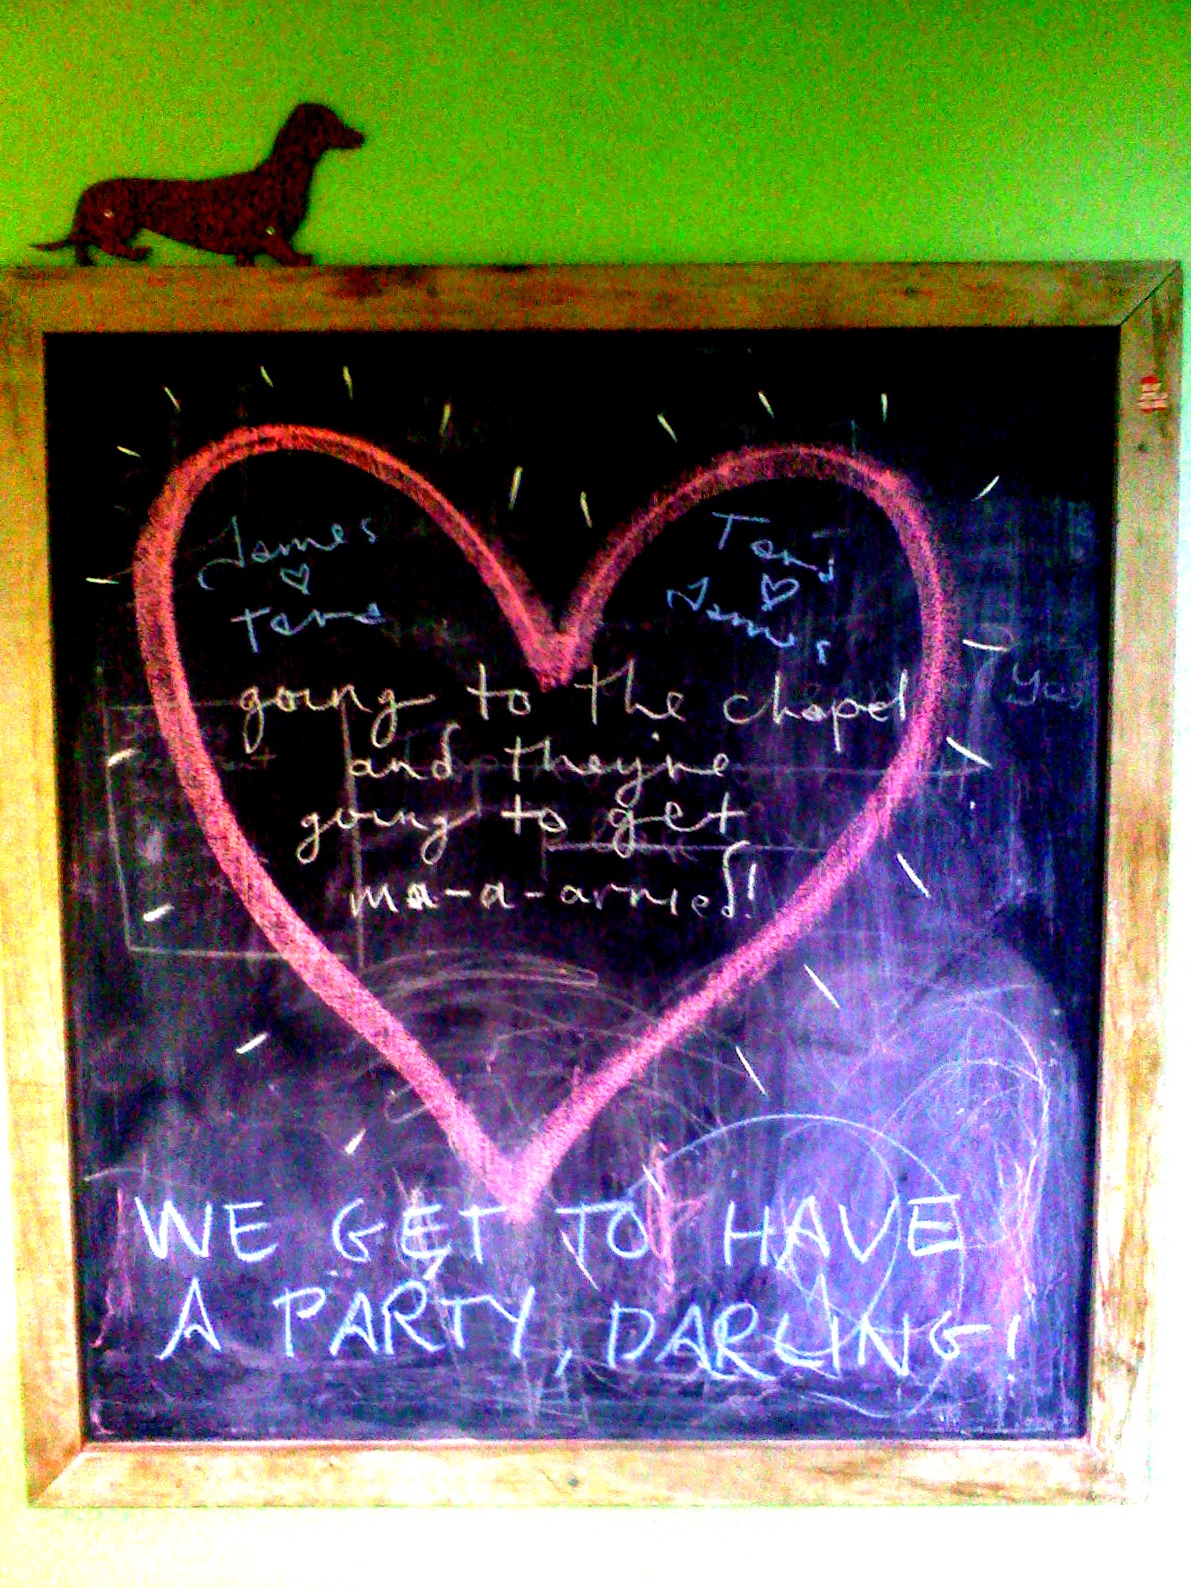 James
♡
Tens
Tens
♡
James
going to the chapel
and they're
going to get
ma-a-arried!
Yas
WE GET TO HAVE
A PARTY, DARLING!